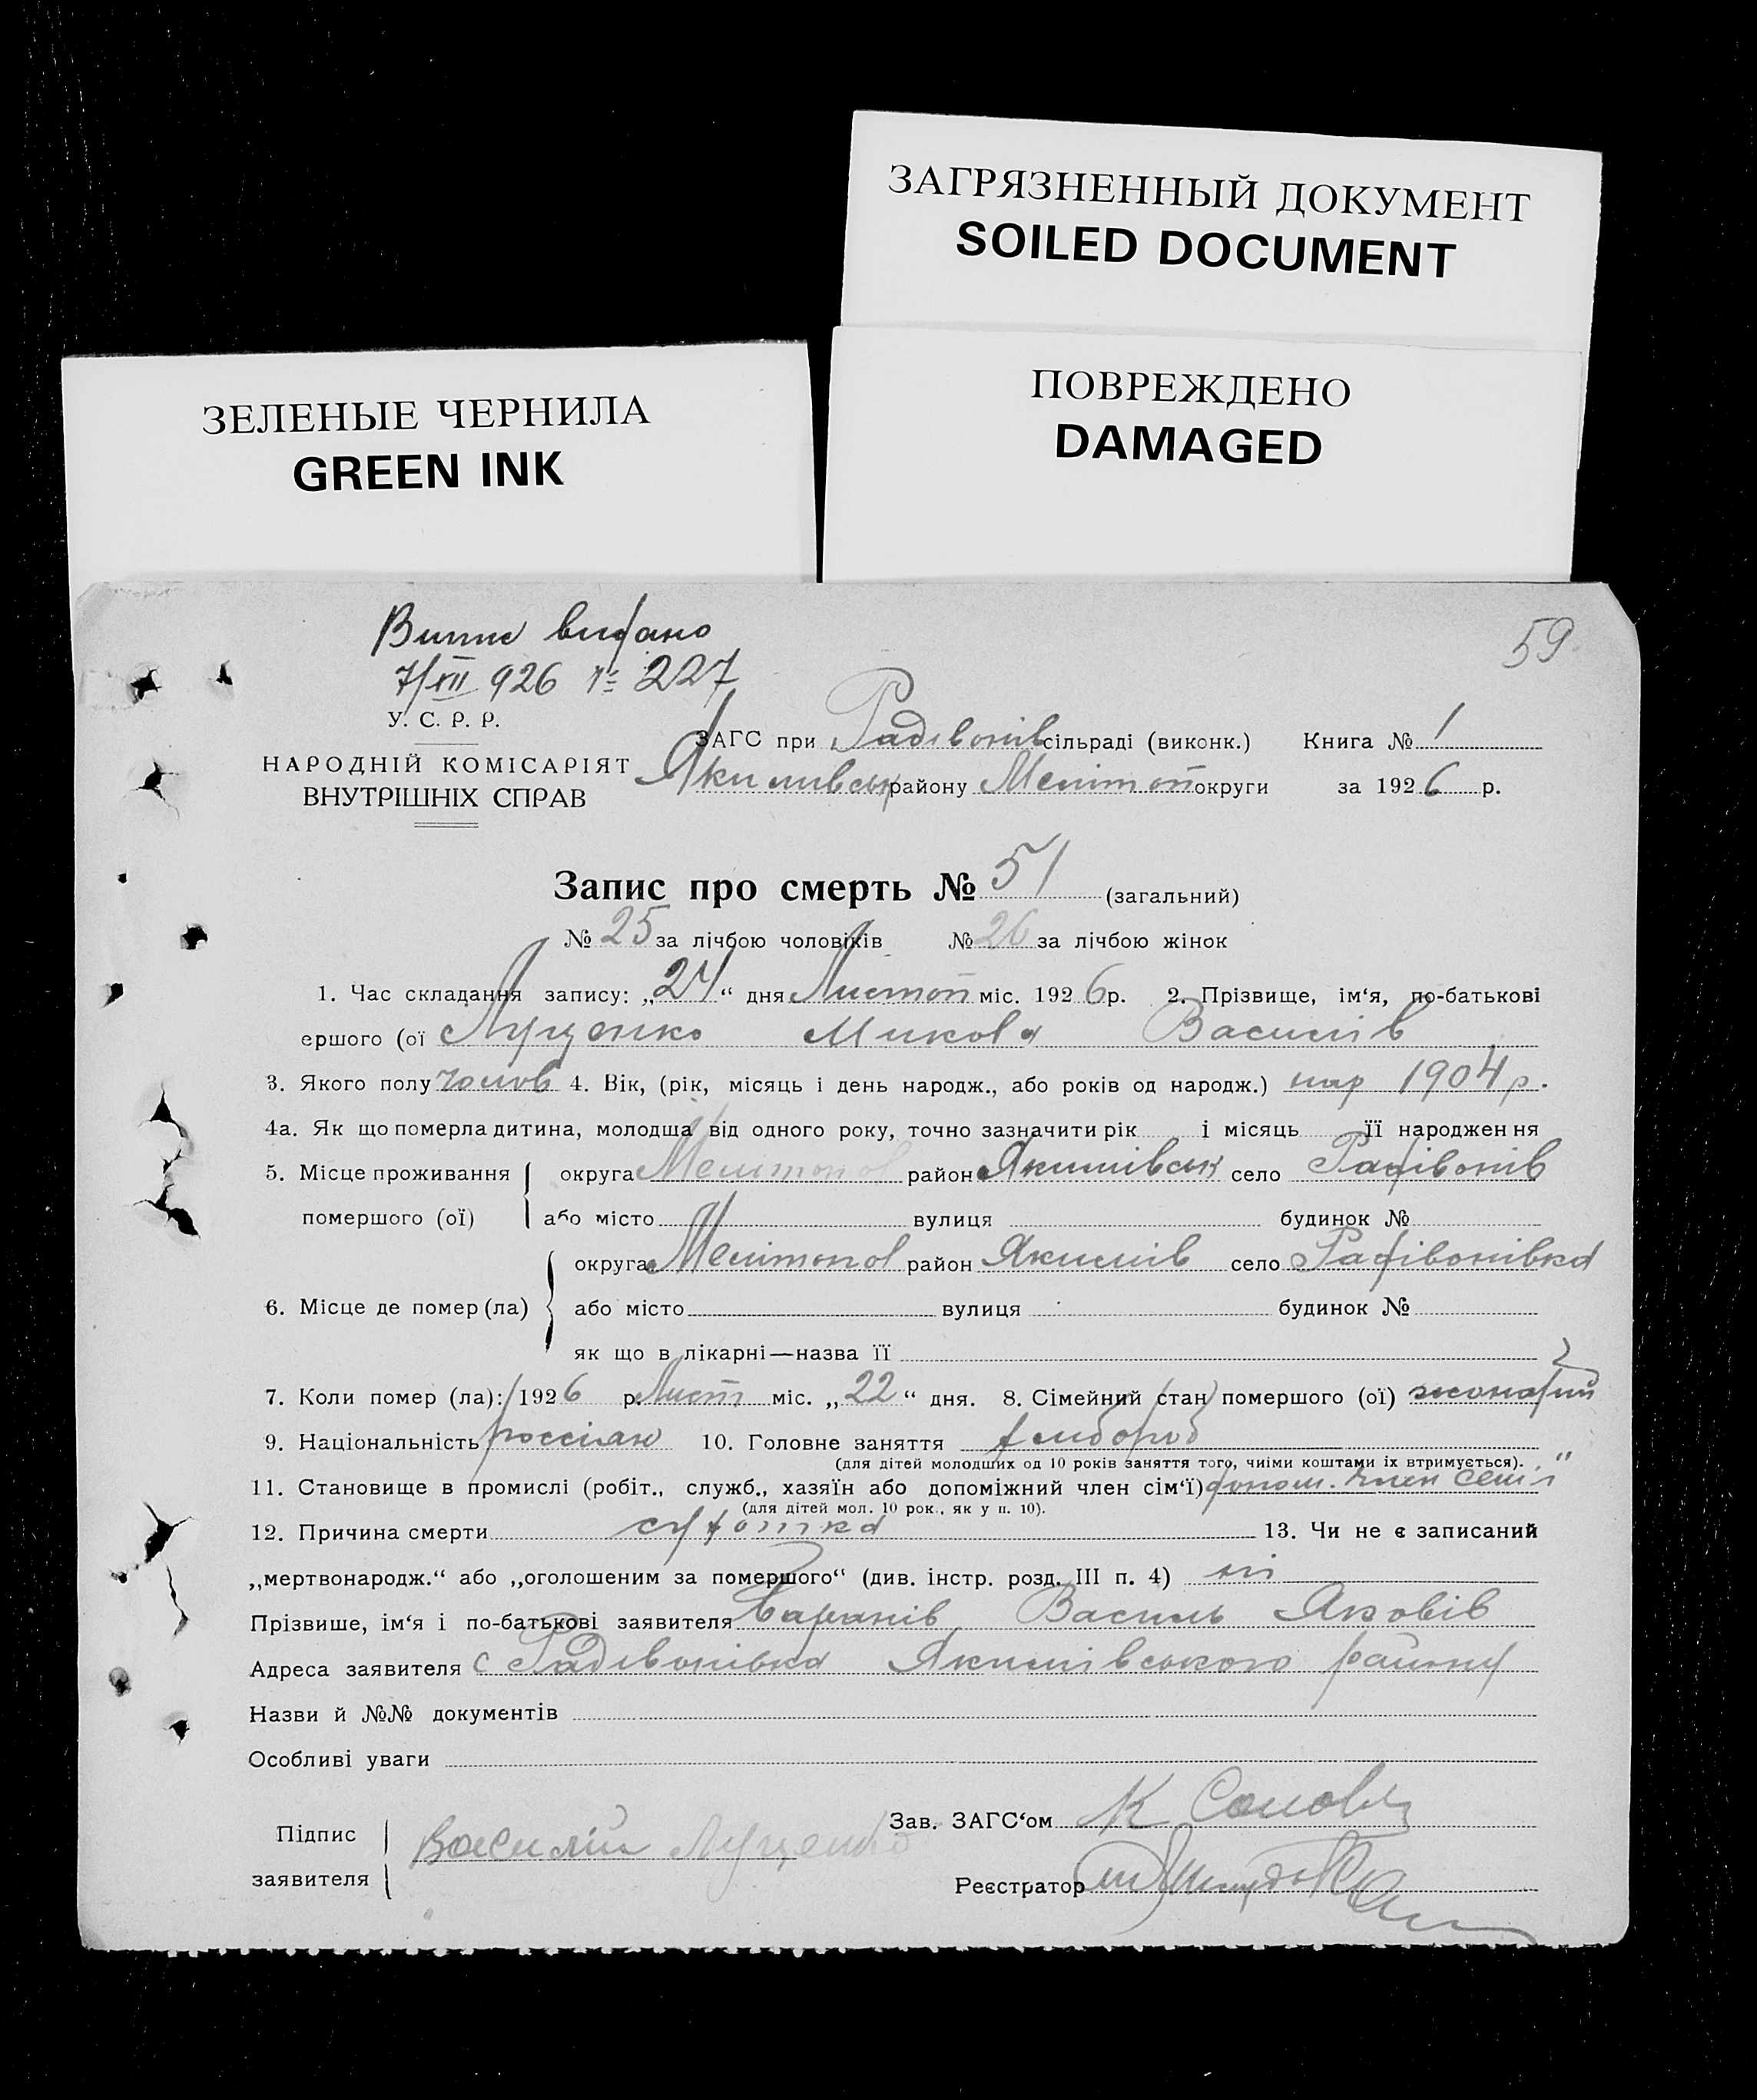 ЗАГРЯЗНЕННЫЙ ДОКУМЕНТ
SOILED DOCUMENT
ПОВРЕЖДЕНО
DAMAGED
ЗЕЛЕНЫЕ ЧЕРНИЛА
GREEN INK
59
Випис видано
7/XII 926 № 227
У. С. Р. Р.
НАРОДНІЙ КОМІСАРІЯТ
ВНУТРІШНІХ СПРАВ
ЗАГС при Радівонів сільраді (виконк.) Книга № 1
Якимівськ району Мелітоп округи за 1926 р.
Запис про смерть № 51 (загальний)
№ 25 за лічбою чоловіків № 26 за лічбою жінок
1. Час складання запису: „24“ дня Листоп міс. 1926 р. 2. Прізвище, ім‘я, по-батькові
ершого (ої Луценко Микола Василів
3. Якого полу чолов 4. Вік, (рік, місяць і день народж., або років од народж.) нар 1904 р.
4а. Як що померла дитина, молодша від одного року, точно зазначити рік і місяць її народження
5. Місце проживання округа Мелитопол район Якимівськ село Радівонів
помершого (ої) або місто вулиця будинок №
округа Мелітопол район Якимів село Радівонівка
6. Місце де помер (ла) або місто вулиця будинок №
як що в лікарні—назва її
7. Коли помер (ла): 1926 р. Лист міс. „22“ дня. 8. Сімейний стан помершого (ої) жонатий
9. Національність россіян 10. Головне заняття хлібороб
(для дітей молодших од 10 років заняття того, чиїми коштами їх втримується).
11. Становище в промислі (робіт., служб., хазяїн або допоміжний член сім‘ї) допом. член семії
(для дітей мол. 10 рок., як у п. 10).
12. Причина смерти сухотка 13. Чи не є записаний
„мертвонародж.“ або „оголошеним за помершого“ (див. інстр. розд. III п. 4) ні
Прізвише, ім‘я і по-батькові заявителя Василь Яковів
Адреса заявителя с Радівонівка Якимівського району
Назви й №№ документів
Особливі уваги
Зав. ЗАГС‘ом К
Підпис
заявителя Василій Луценко
Реєстратор